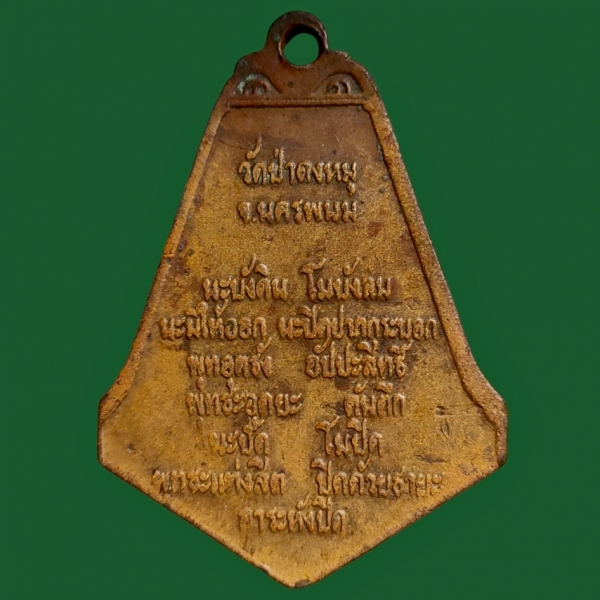 วัดป่าดงหมู
จ.นครพนม
นะบังดิน โมบังลม
นะมิให้ออก นะปิดปากกระบอก
พุทธุดธัง อัปปะสิทธิ
พุทธะอุดยะ ตันติด
นะปัด โมปิด
พาระแห่งจิต ปิดด้วยชายะ
อาระหังปิด